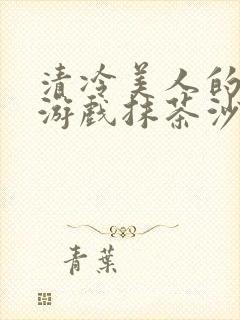 清冷美人的
游戏抹茶沙
青葉